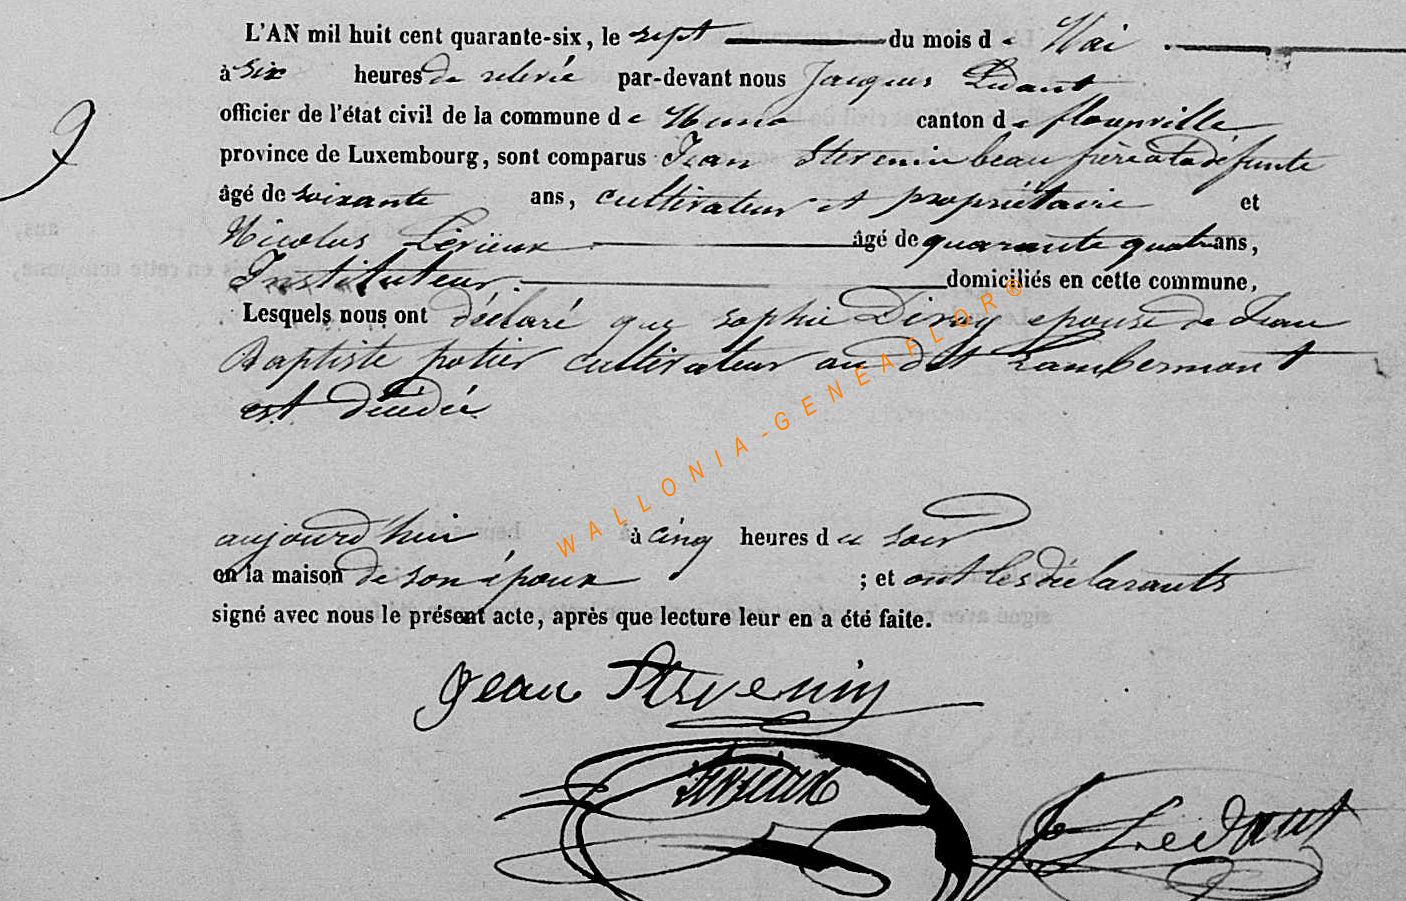 9
L'AN mil huit cent quarante-six, le sept du mois de Mai.
à six heures de relevée par-devant nous Jacques Ledant
officier de l'état civil de la commune de Muno canton de florenville
province de Luxembourg, sont comparus Jean Stevenin beau frère à la défunte
âgé de soixante ans, cultivateur et propriétaire et
Nicolas Lérieux âgé de quarante quatre ans,
Instituteur. domiciliés en cette commune,
Lesquels nous ont déclaré que sophie Diray epouse de Jean
Baptiste potier cultivateur au dit Lambermont
est décédée
aujourd'hui à cinq heures du soir
en la maison de son époux ; et ont les déclarants
signé avec nous le présent acte, après que lecture leur en a été faite.
Jean Stevenin
Lérieux
J Ledant
WALLONIA-GENEAFLOR®